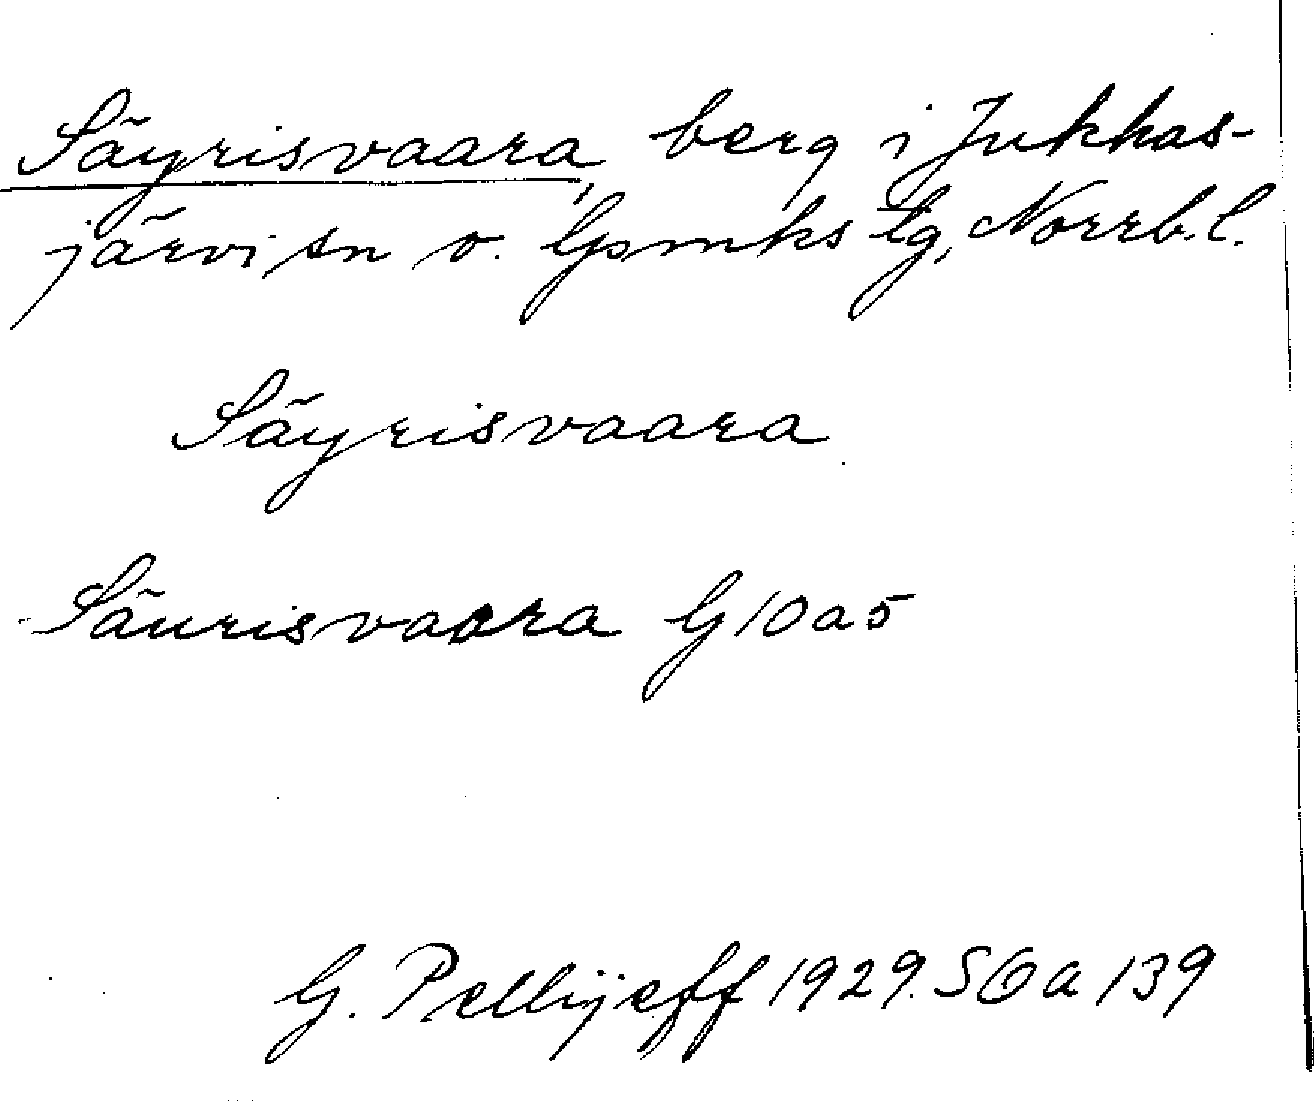 Säyrisvaara, berg i Jukkas-
järvi sn o. Gpmks tg, Norrb. l.
Säyrisvaara
Säurisvaara G 10 a 5
G. Pellijeff 1929. SOa 139